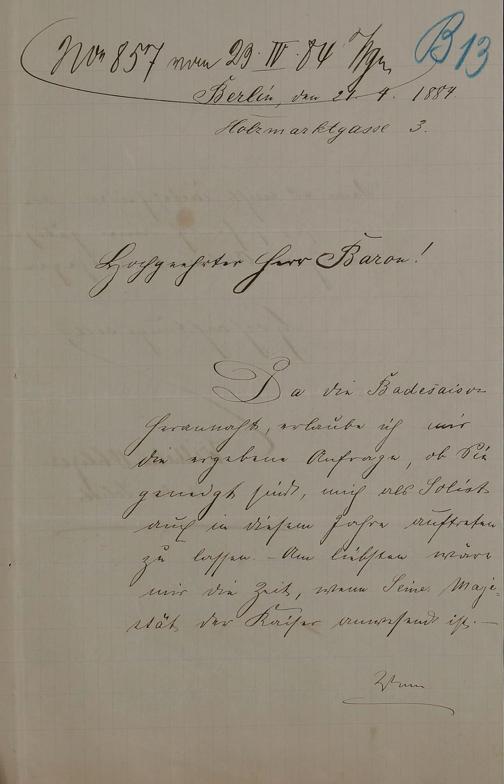 No 857 vom 23. IV. 84
B 13
Berlin, den 21. 4. 1884
Holzmarktgasse 3.
Hochgeehrter Herr Baron!
Da die Badesaison
herannaht, erlaube ich mir
die ergebene Anfrage, ob Sie
geneigt sind, mich als Solist
auch in diesem Jahre auftreten
zu lassen. – Am liebsten wäre
mir die Zeit, wenn Seine Maje-
stät der Kaiser anwesend ist. –